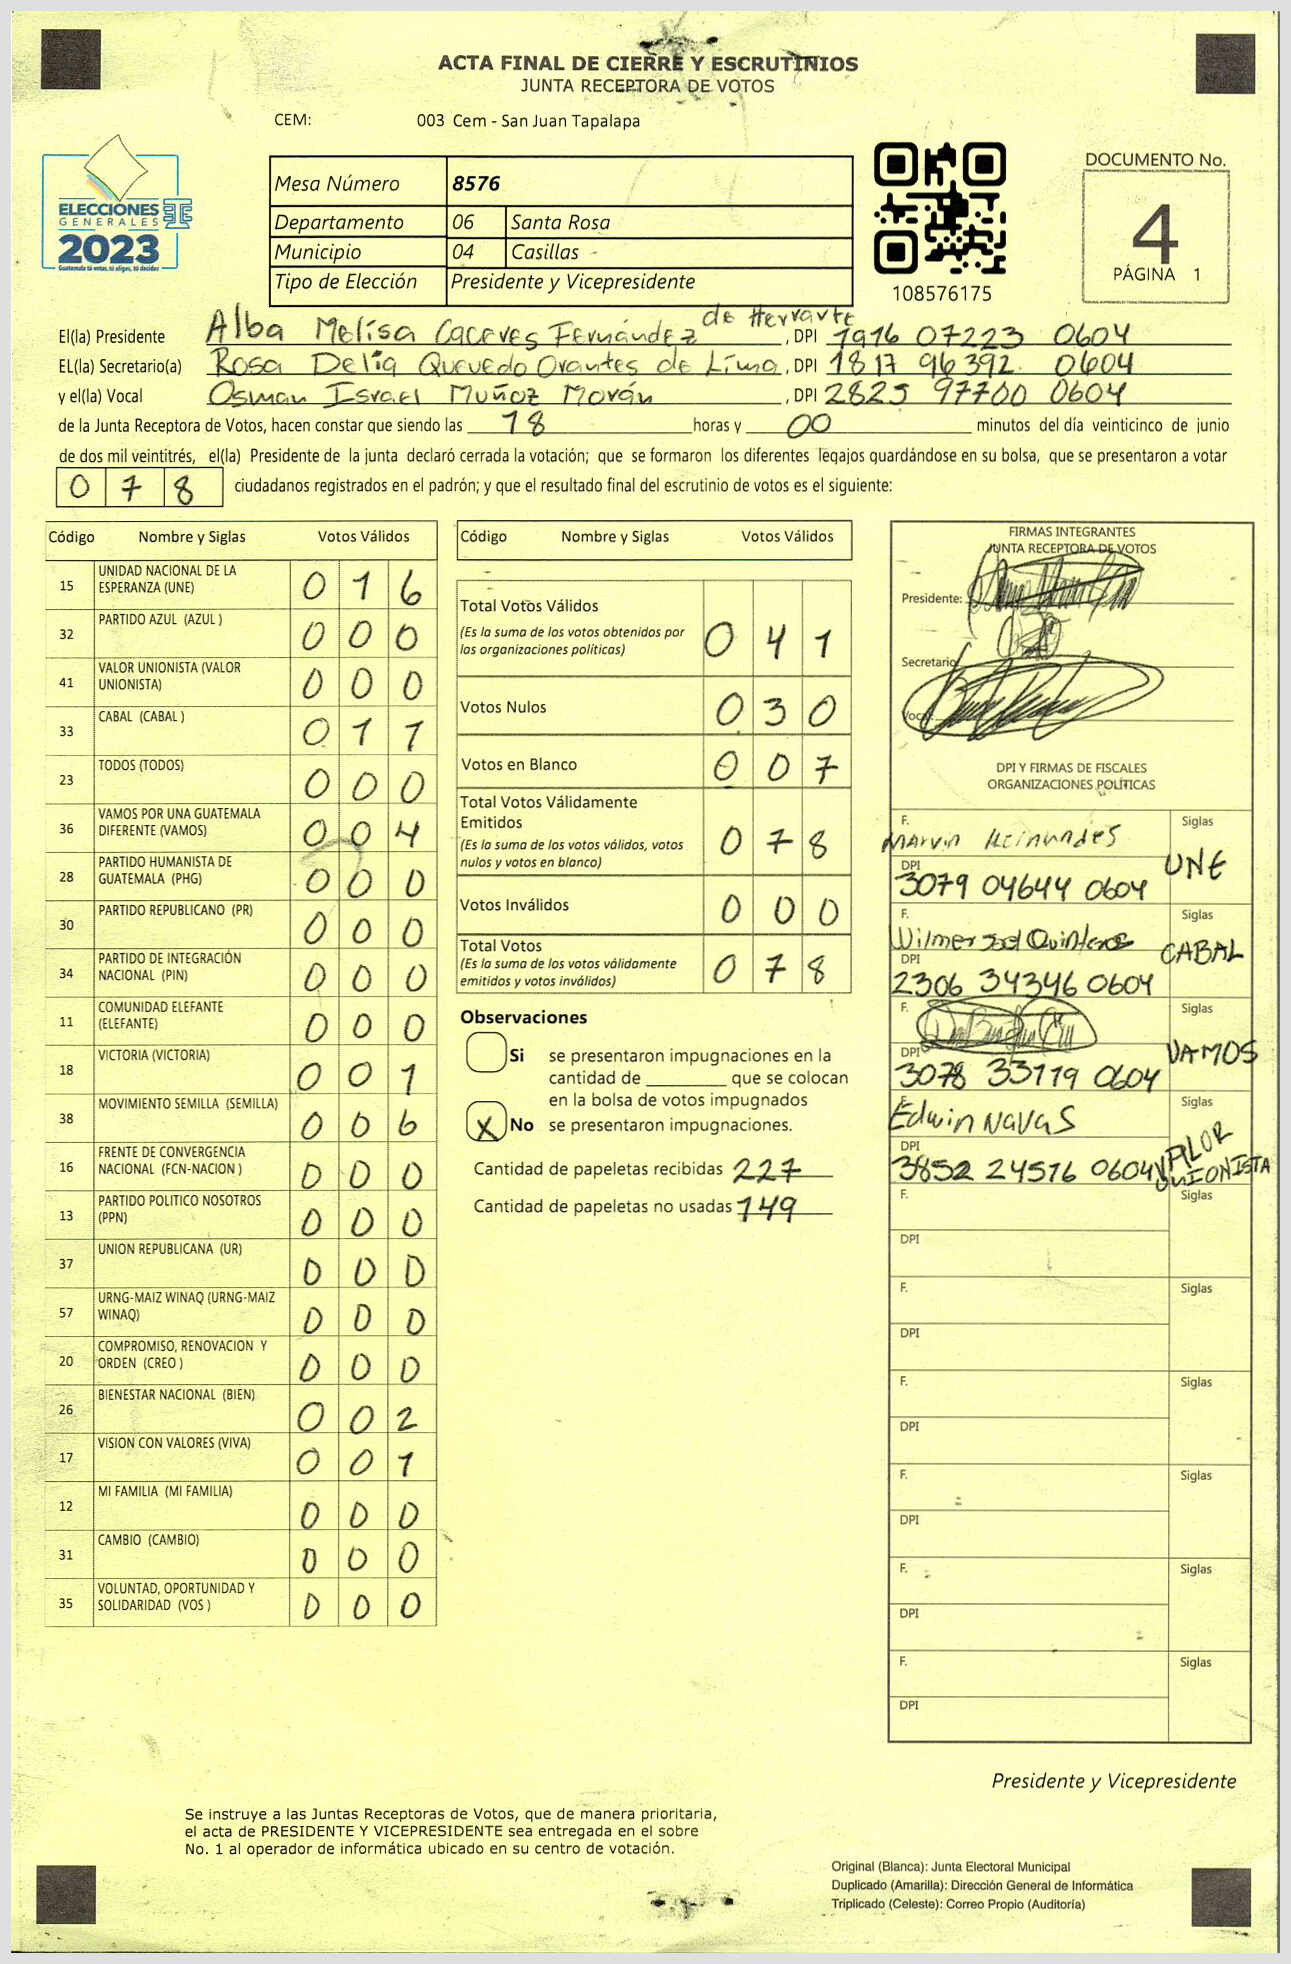 ACTA FINAL DE CIERRE Y ESCRUTINIOS
JUNTA RECEPTORA DE VOTOS
CEM: 003 Cem - San Juan Tapalapa
ELECCIONES
GENERALES
2023
Guatemala tú votas, tú eliges, tú decides
Mesa Número 8576
Departamento 06 Santa Rosa
Municipio 04 Casillas
Tipo de Elección Presidente y Vicepresidente
108576175
DOCUMENTO No.
4
PÁGINA 1
El(la) Presidente Alba Melisa Caceres Fernández de Herrarte, DPI 1916 07223 0604
EL(la) Secretario(a) Rosa Delia Quevedo Orantes de Lima, DPI 1817 96392 0604
y el(la) Vocal Osman Israel Muñoz Morán, DPI 2825 97700 0604
de la Junta Receptora de Votos, hacen constar que siendo las 18 horas y 00 minutos del día veinticinco de junio
de dos mil veintitrés, el(la) Presidente de la junta declaró cerrada la votación; que se formaron los diferentes legajos guardándose en su bolsa, que se presentaron a votar
0 7 8 ciudadanos registrados en el padrón; y que el resultado final del escrutinio de votos es el siguiente:
Código Nombre y Siglas Votos Válidos
15 UNIDAD NACIONAL DE LA ESPERANZA (UNE) 0 1 6
32 PARTIDO AZUL (AZUL ) 0 0 0
41 VALOR UNIONISTA (VALOR UNIONISTA) 0 0 0
33 CABAL (CABAL ) 0 1 1
23 TODOS (TODOS) 0 0 0
36 VAMOS POR UNA GUATEMALA DIFERENTE (VAMOS) 0 0 4
28 PARTIDO HUMANISTA DE GUATEMALA (PHG) 0 0 0
30 PARTIDO REPUBLICANO (PR) 0 0 0
34 PARTIDO DE INTEGRACIÓN NACIONAL (PIN) 0 0 0
11 COMUNIDAD ELEFANTE (ELEFANTE) 0 0 0
18 VICTORIA (VICTORIA) 0 0 1
38 MOVIMIENTO SEMILLA (SEMILLA) 0 0 6
16 FRENTE DE CONVERGENCIA NACIONAL (FCN-NACION ) 0 0 0
13 PARTIDO POLITICO NOSOTROS (PPN) 0 0 0
37 UNION REPUBLICANA (UR) 0 0 0
57 URNG-MAIZ WINAQ (URNG-MAIZ WINAQ) 0 0 0
20 COMPROMISO, RENOVACION Y ORDEN (CREO ) 0 0 0
26 BIENESTAR NACIONAL (BIEN) 0 0 2
17 VISION CON VALORES (VIVA) 0 0 1
12 MI FAMILIA (MI FAMILIA) 0 0 0
31 CAMBIO (CAMBIO) 0 0 0
35 VOLUNTAD, OPORTUNIDAD Y SOLIDARIDAD (VOS ) 0 0 0
Código Nombre y Siglas Votos Válidos
Total Votos Válidos 0 4 1
(Es la suma de los votos obtenidos por
las organizaciones políticas)
Votos Nulos 0 3 0
Votos en Blanco 0 0 7
Total Votos Válidamente
Emitidos 0 7 8
(Es la suma de los votos válidos, votos
nulos y votos en blanco)
Votos Inválidos 0 0 0
Total Votos 0 7 8
(Es la suma de los votos válidamente
emitidos y votos inválidos)
Observaciones
Si se presentaron impugnaciones en la
cantidad de ________ que se colocan
en la bolsa de votos impugnados
X No se presentaron impugnaciones.
Cantidad de papeletas recibidas 227
Cantidad de papeletas no usadas 149
FIRMAS INTEGRANTES
JUNTA RECEPTORA DE VOTOS
Presidente:
Secretario:
Vocal:
DPI Y FIRMAS DE FISCALES
ORGANIZACIONES POLÍTICAS
F. Marvin Hernandes Siglas UNE
DPI 3079 04644 0604
F. Wilmer Quinteros Siglas CABAL
DPI 2306 34346 0604
F. Siglas VAMOS
DPI 3078 33119 0604
F. Edwin NavaS Siglas VALOR UNIONISTA
DPI 3852 24576 0604
F. Siglas
DPI
F. Siglas
DPI
F. Siglas
DPI
F. Siglas
DPI
F. Siglas
DPI
F. Siglas
DPI
Presidente y Vicepresidente
Se instruye a las Juntas Receptoras de Votos, que de manera prioritaria,
el acta de PRESIDENTE Y VICEPRESIDENTE sea entregada en el sobre
No. 1 al operador de informática ubicado en su centro de votación.
Original (Blanca): Junta Electoral Municipal
Duplicado (Amarilla): Dirección General de Informática
Triplicado (Celeste): Correo Propio (Auditoría)